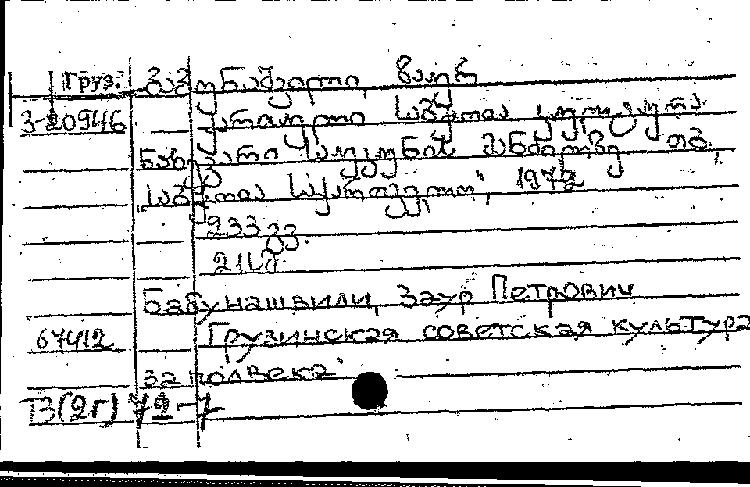 Груз. ბაბუნაშვილი, ზაურ
3-20946 ქართული საბჭოთა კულტურა
ნახევარი საუკუნის მანძილზე თბ.,
"საბჭოთა საქართველო", 1972
233 გვ.
Бабунашвили, Заур Петрович
67412 Грузинская советская культура
за полвека.
ТЗ(2г) 72-7